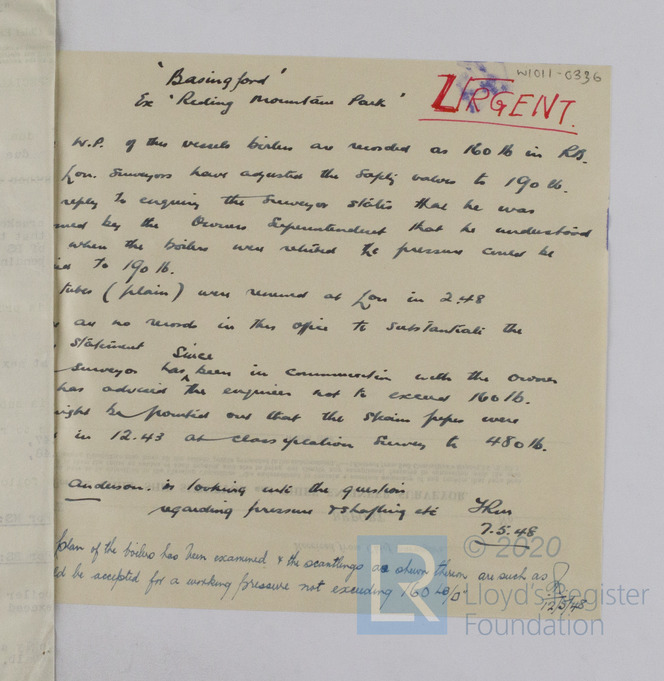 W1011-0336
'Basingford'
Ex 'Reding Mountain Park'
URGENT.
W.P. of this vessels boilers are recorded as 160 lb in RB.
Lon. Surveyors have adjusted the Safety valves to 190 lb.
reply to enquiry the Surveyor states that he was
med by the Owners Superintendent that he understood
when the boilers were retubed the pressure could be
ed to 190 lb.
tubes (plain) were renewed at Lon in 2.48
are no records in this office to substantiate the
statement
Surveyor has Since been in communication with the Owner
has advised the engineer not to exceed 160 lb.
might be pointed out that the steam pipes were
in 12.43 at classification Survey to 480 lb.
Anderson. is looking into the question
regarding pressure & shafting etc
7.5.48
plan of the boilers has been examined & the scantlings as shewn thereon are such as
ld be accepted for a working pressure not exceeding 160 lb/□"
12/5/48
LR
© 2020
Lloyd's Register
Foundation